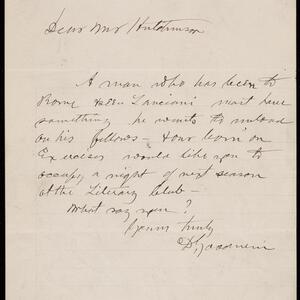 Dear Mr Hutchinson
A man who has been to
Rome & seen Lanciani must have
something he wants to unload
on his fellows — & our Com' on
Exercises would like you to
occupy a night of next season
at the Literary Club —
What say you?
Yours truly